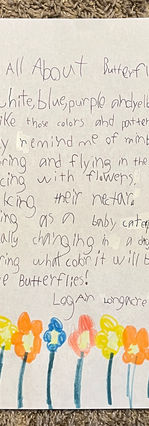 All About Butterfl
white, blue, purple and yel
ike those colors and patter
y remind me of min
ring and flying in the
cing with flowers,
king their nectar.
ing as a baby cater
ally changing in a d
ring what color it will b
e Butterflies!
Logan Longacre